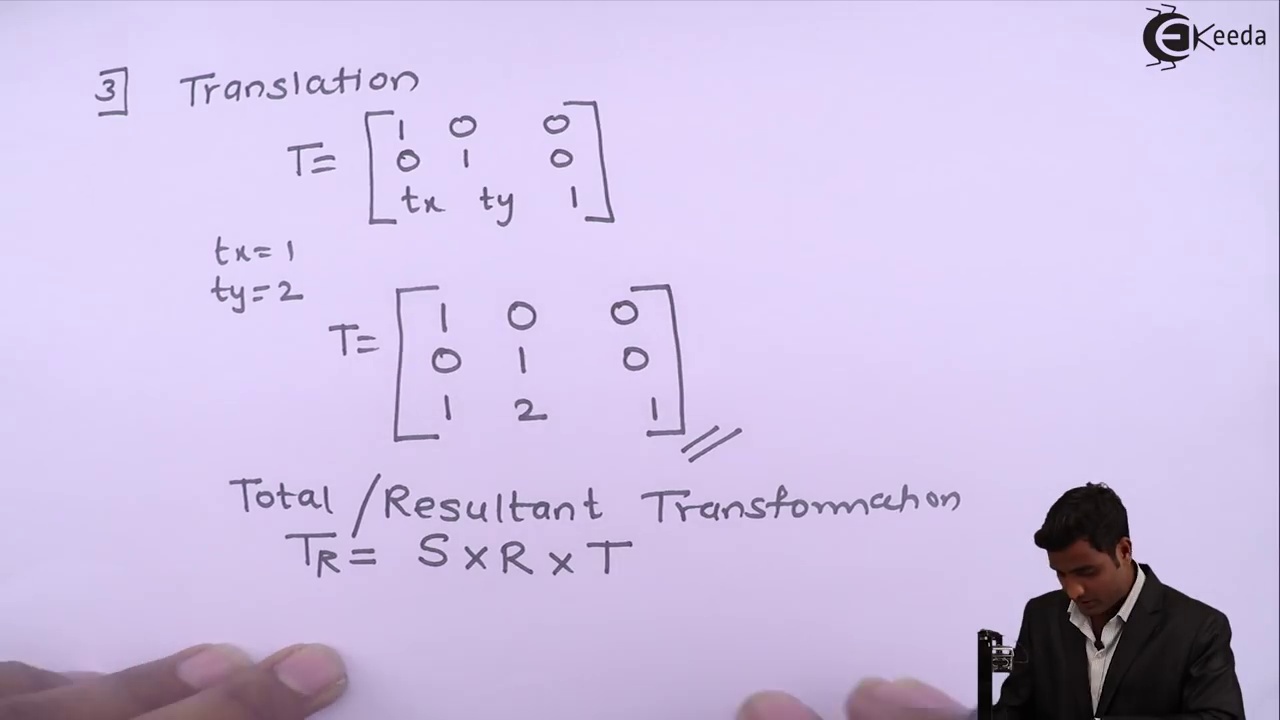 EKeeda
3] Translation
T= [ 1 0 0
0 1 0
tx ty 1 ]
tx= 1
ty= 2
T= [ 1 0 0
0 1 0
1 2 1 ] //
Total /Resultant Transformation
TR= S x R x T